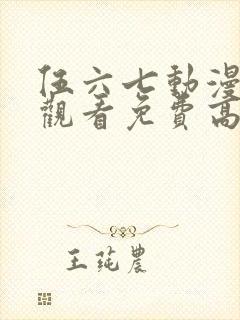 伍六七動漫
觀看免費高
王莼農